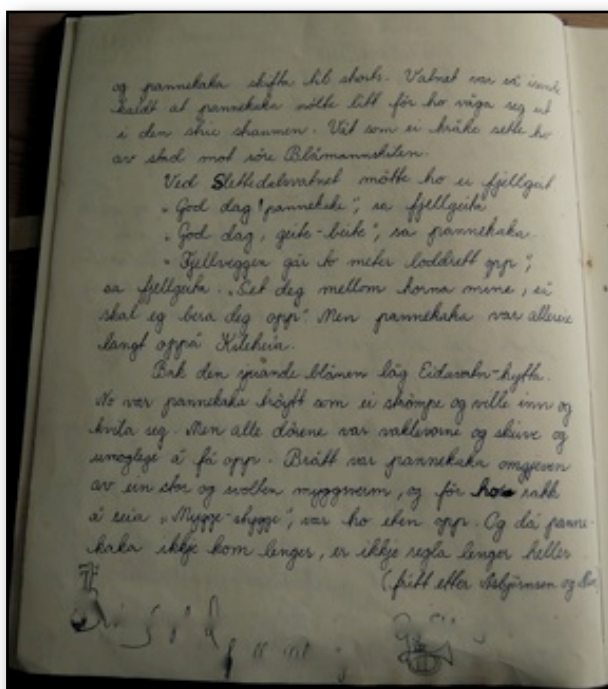 og pannekaka skifta til shorts. Vatnet var så
kaldt at pannekaka måtte litt før ho våga seg ut
i den strie straumen. Våt som ei kråke sette ho
av stad mot søre Blåmannskilen.
Ved Slettedalsvatnet møtte ho ei fjellgeit
"God dag, pannekake", sa fjellgeita
"God dag, geite-beite", sa pannekaka.
"Fjellveggen går to meter loddrett opp",
sa fjellgeita. "Set deg mellom horna mine, så
skal eg bera deg opp". Men pannekaka var allereie
langt oppå Kileheia.
Bak den blånen låg Eidsvatn-hytta.
No var pannekaka trøytt som ei strømpe og ville inn og
kvila seg. Men alle dørene var vaklevorne og skeive og
umoglege å få opp. Brått var pannekaka omgjeven
av ein stor og svolten myggsverm, og før ho rakk
å seia "Mygge-stygge", var ho eten opp. Og då panne-
kaka ikkje kom lenger, er ikkje regla lenger heller
(fritt etter Asbjørnsen og